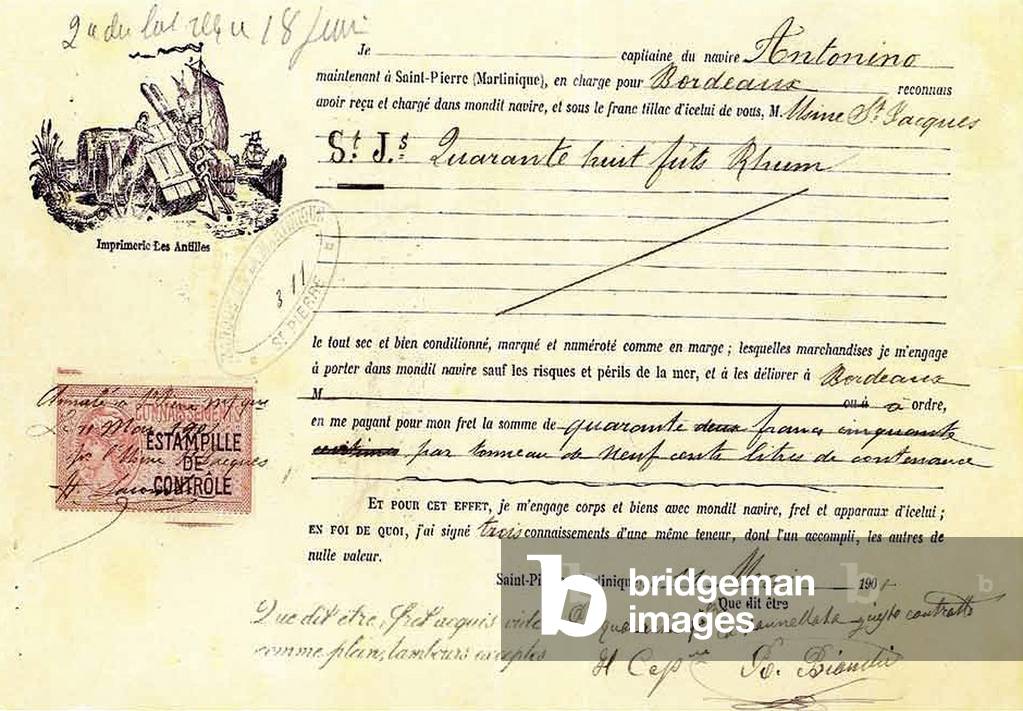 2e du lot reçu 18 Juin
Je capitaine du navire Antonino
maintenant à Saint-Pierre (Martinique), en charge pour Bordeaux reconnais
avoir reçu et chargé dans mondit navire, et sous le franc tillac d'icelui de vous, M. Usine St Jacques
St. Js. Quarante huit fûts Rhum
Imprimerie Les Antilles
3 11
St PIERRE
le tout sec et bien conditionné, marqué et numéroté comme en marge ; lesquelles marchandises je m'engage
à porter dans mondit navire sauf les risques et périls de la mer, et à les délivrer à Bordeaux
M ou à a ordre,
en me payant pour mon fret la somme de quarante deux francs cinquante
centimes par tonneau de neuf cents litres de contenance
CONNAISSEMENT
ESTAMPILLE
DE
CONTRÔLE
ET POUR CET EFFET, je m'engage corps et biens avec mondit navire, fret et apparaux d'icelui ;
EN FOI DE QUOI, j'ai signé trois connaissements d'une même teneur, dont l'un accompli, les autres de
nulle valeur.
Saint-Pierre Martinique Mai 1901
Que dit être
Que dit être, fret acquis vide
comme plan, tambours exceptés
questo contratto
Il Capne
bridgeman
images
b